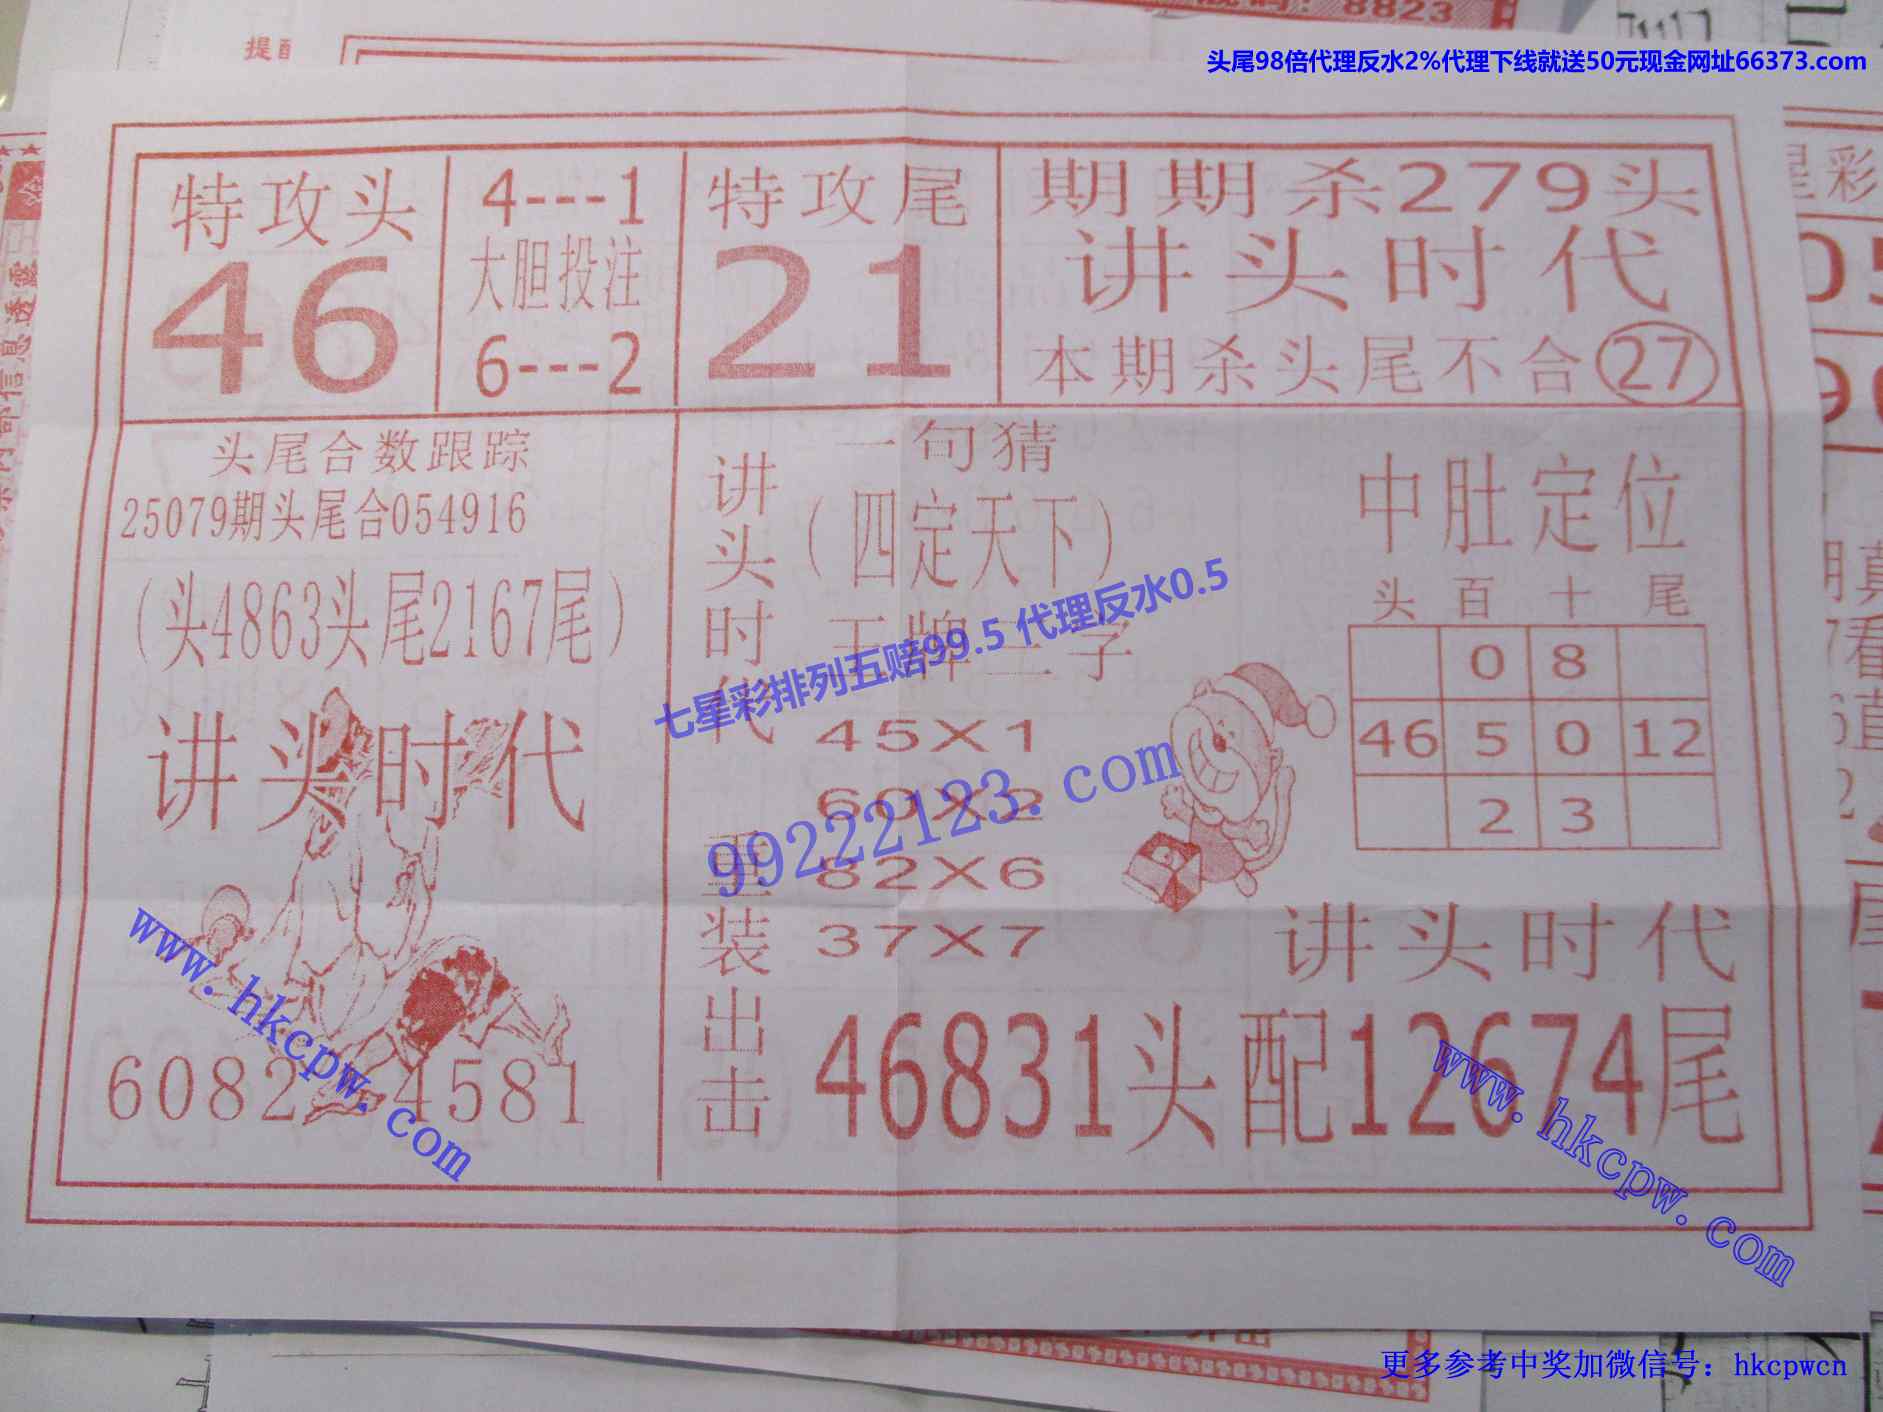 码：8823
提醒
头尾98倍代理反水2%代理下线就送50元现金网址66373.com
特攻头
46
4---1
大胆投注
6---2
特攻尾
21
期期杀279头
讲头时代
本期杀头尾不合27
头尾合数跟踪
25079期头尾合054916
(头4863头尾2167尾)
讲头时代
6082 4581
讲头时代
重装出击
一句猜
(四定天下)
王牌三字
45X1
60X2
82X6
37X7
中肚定位
头 百 十 尾
0 8
46 5 0 12
2 3
讲头时代
46831头配12674尾
七星彩排列五赔99.5 代理反水0.5
99222123.com
www.hkcpw.com
www.hkcpw.com
信息透露
更多参考中奖加微信号：hkcpwcn